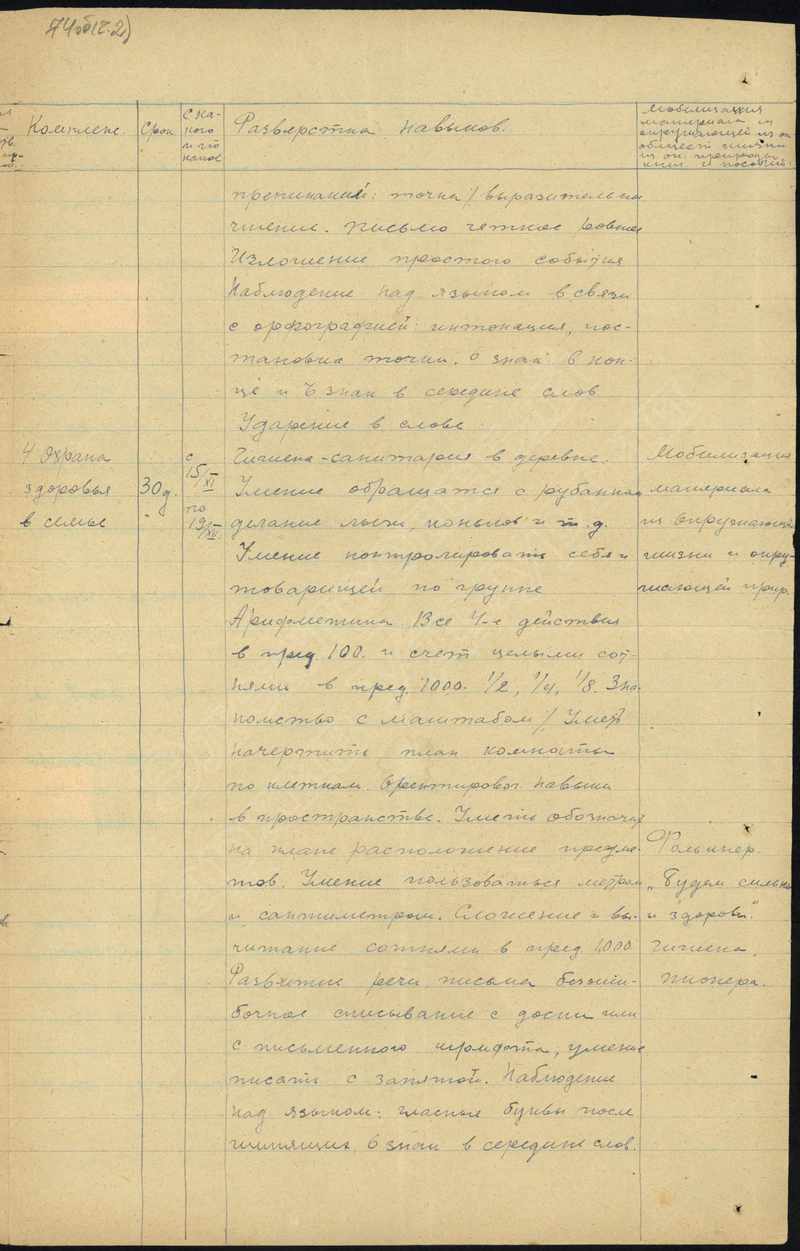 74об(ч.2)
Комплекс.
Срок
С ка-
кого
и по
какое
Развёрстка навыков.
Мобилизация
материала из
окружающей их
обществ жизни
препинаний: точка / выразительн
чтение. Письмо четкое ровное
Изложение простого события
Наблюдение над языком в связи
с орфографией: интонация, пос-
тановка точки. Ъ знак в кон-
це и Ъ знак в середине слов
Ударение в слове
4 Охрана
здоровья
в семье
30 д.
с
15/XI
по
19/XII
Гигиена-санитария в деревне.
Умение обращатся с рубанком
делание лыжи, коньков и т.д.
Умение контролировать себя и
товарищей по группе
Арифметика. Все 4-е действия
в пред. 100. и счет целыми сот-
нями в пред. 1000. 1/2, 1/4, 1/8. Зна-
комство с маштабом / Уметь
начертить план комнаты
по клеткам. Орентировоч. навыки
в пространстве. Уметь обозначать
на плане расположение предме-
тов. Умение пользоваться метром
и сантиметром. Сложение и вы-
читание сотнями в пред. 1000
Развитие речи, письма безоши-
бочное списывание с доски или
с письменного шрифта, умение
писать с запятой. Наблюдение
над языком: гласные буквы после
шипящих, Ь знак в середине слов.
Мобилизация
материала
из окружающей
жизни и окру-
жающей прир.
Фольклор.
„Будем сильны
и здоровы."
Гигиена
пионера.